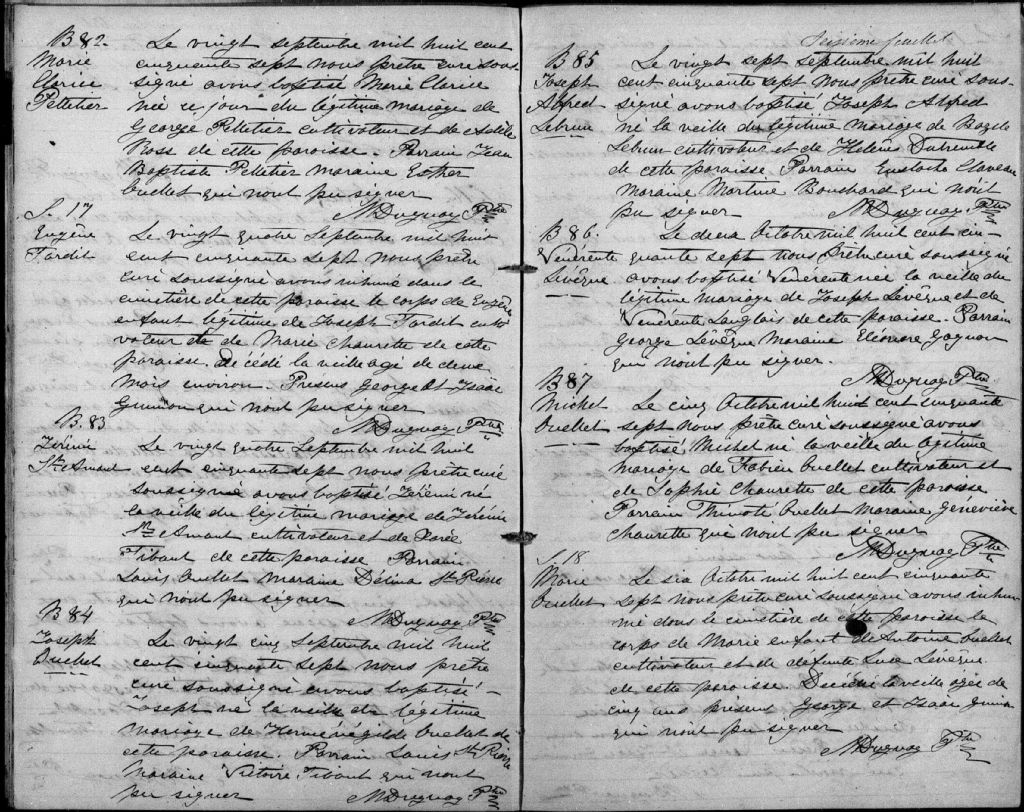 B 82.
Marie
Clarice
Pelletier
Le vingt septembre mil huit cent
cinquante sept nous prêtre curé sous-
signé avons baptisé Marie Clarice
née ce jour du légitime mariage de
George Pelletier cultivateur et de Adèle
Ross de cette paroisse. Parrain Jean
Baptiste Pelletier maraine Esther
Ouellet qui n'ont pu signer
MDuguay Ptre
S. 17
Eugène
Tardit
Le vingt quatre Septembre mil huit
cent cinquante sept nous prêtre
curé soussigné avons inhumé dans le
cimitière de cette paroisse le corps de Eugène
enfant légitime de Joseph Tardit culti
vateur et de Marie Chaurette de cette
paroisse. décédé la veille agé de deux
mois environ. Presens George et Isaac
qui n'ont pu signer
MDuguay Ptre
B. 83
Jérémi
St. Amand
Le vingt quatre Septembre mil huit
cent cinquante sept nous prêtre curé
soussigné avons baptisé Jérémi né
la veille du légitime mariage de Jérémi
St. Amant cultivateur et de
Tibaut de cette paroisse Parrain
Louis Ouellet maraine Délina St. Pierre
qui n'ont pu signer
MDuguay Ptre
B 84
Joseph
Ouellet
Le vingt cinq septembre mil huit
cent cinquante sept nous prêtre
curé soussigné avons baptisé -
Joseph né la veille du légitime
mariage de Herménégilde Ouellet de
cette paroisse. Parrain Louis St. Pierre
Maraine Victoire Tibaut qui n'ont
pu signer MDuguay Ptre
Seizieme feuillet
B 85
Joseph
Alfred
Lebrun
Le vingt sept septembre mil huit
cent cinquante sept nous prêtre curé sous-
signé avons baptisé Joseph Alfred
né la veille du légitime mariage de Bazile
Lebrun cultivateur et de Helene Dutremble
de cette paroisse Parrain Eustache Claveau
Maraine Martine Bouchard qui n'ont
pu signer MDuguay Ptre
B 86.
Vénérente
Levêque
Le deux Octobre mil huit cent cin-
quante sept nous Prêtre curé soussigné
avons baptisé Vénérente née la veille du
légitime mariage de Joseph Levêque et de
Vénérente Langlais de cette paroisse. Parrain
George Levêque Maraine Eléonore Gagnon
qui n'ont pu signer.
MDuguay Ptre
B 87
Michel
Ouellet
Le cinq Octobre mil huit cent cinquante
sept nous prêtre curé soussigné avons
baptisé Michel né la veille du légitime
mariage de Fabien Ouellet cultivateur et
de Sophie Chaurette de cette paroisse
Parrain Timoté Ouellet Maraine Géneviève
Chaurette qui n'ont pu signer
MDuguay Ptre
S. 18
Marie
Ouellet
Le six Octobre mil huit cent cinquante
sept nous prêtre curé soussigné avons inhu
mé dans le cimetière de cette paroisse le
corps de Marie enfant de Antoine Ouellet
cultivateur et de défunte Luce Levêque
de cette paroisse Décédé la veille agée de
cinq ans presens George et Isaac
qui n'ont pu signer
MDuguay Ptre